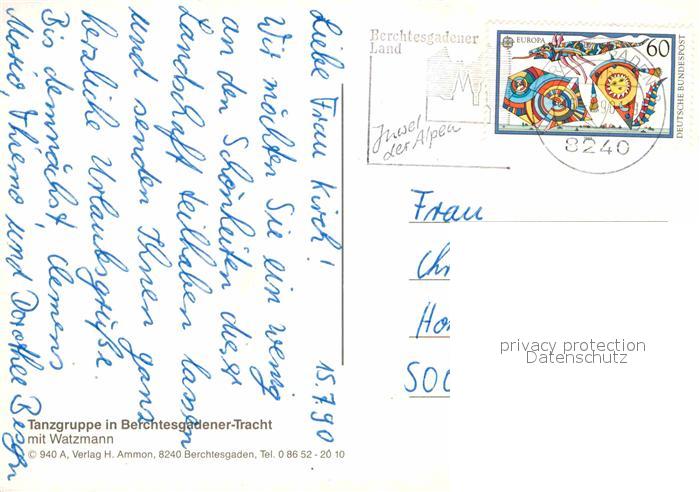 Liebe Frau Kirch! 15.7.90
Wir möchten Sie ein wenig
an den Schönheiten dieser
Landschaft teilhaben lassen
und senden Ihnen ganz
herzliche Urlaubsgrüße.
Bis demnächst, Clemens
Mario, Thiemo und Dorothee
Tanzgruppe in Berchtesgadener-Tracht
mit Watzmann
© 940 A, Verlag H. Ammon, 8240 Berchtesgaden, Tel. 0 86 52 - 20 10
Berchtesgadener
Land
Insel
der Alpen
EUROPA 60
DEUTSCHE BUNDESPOST
8240
Frau
Ch
Ho
500
privacy protection
Datenschutz